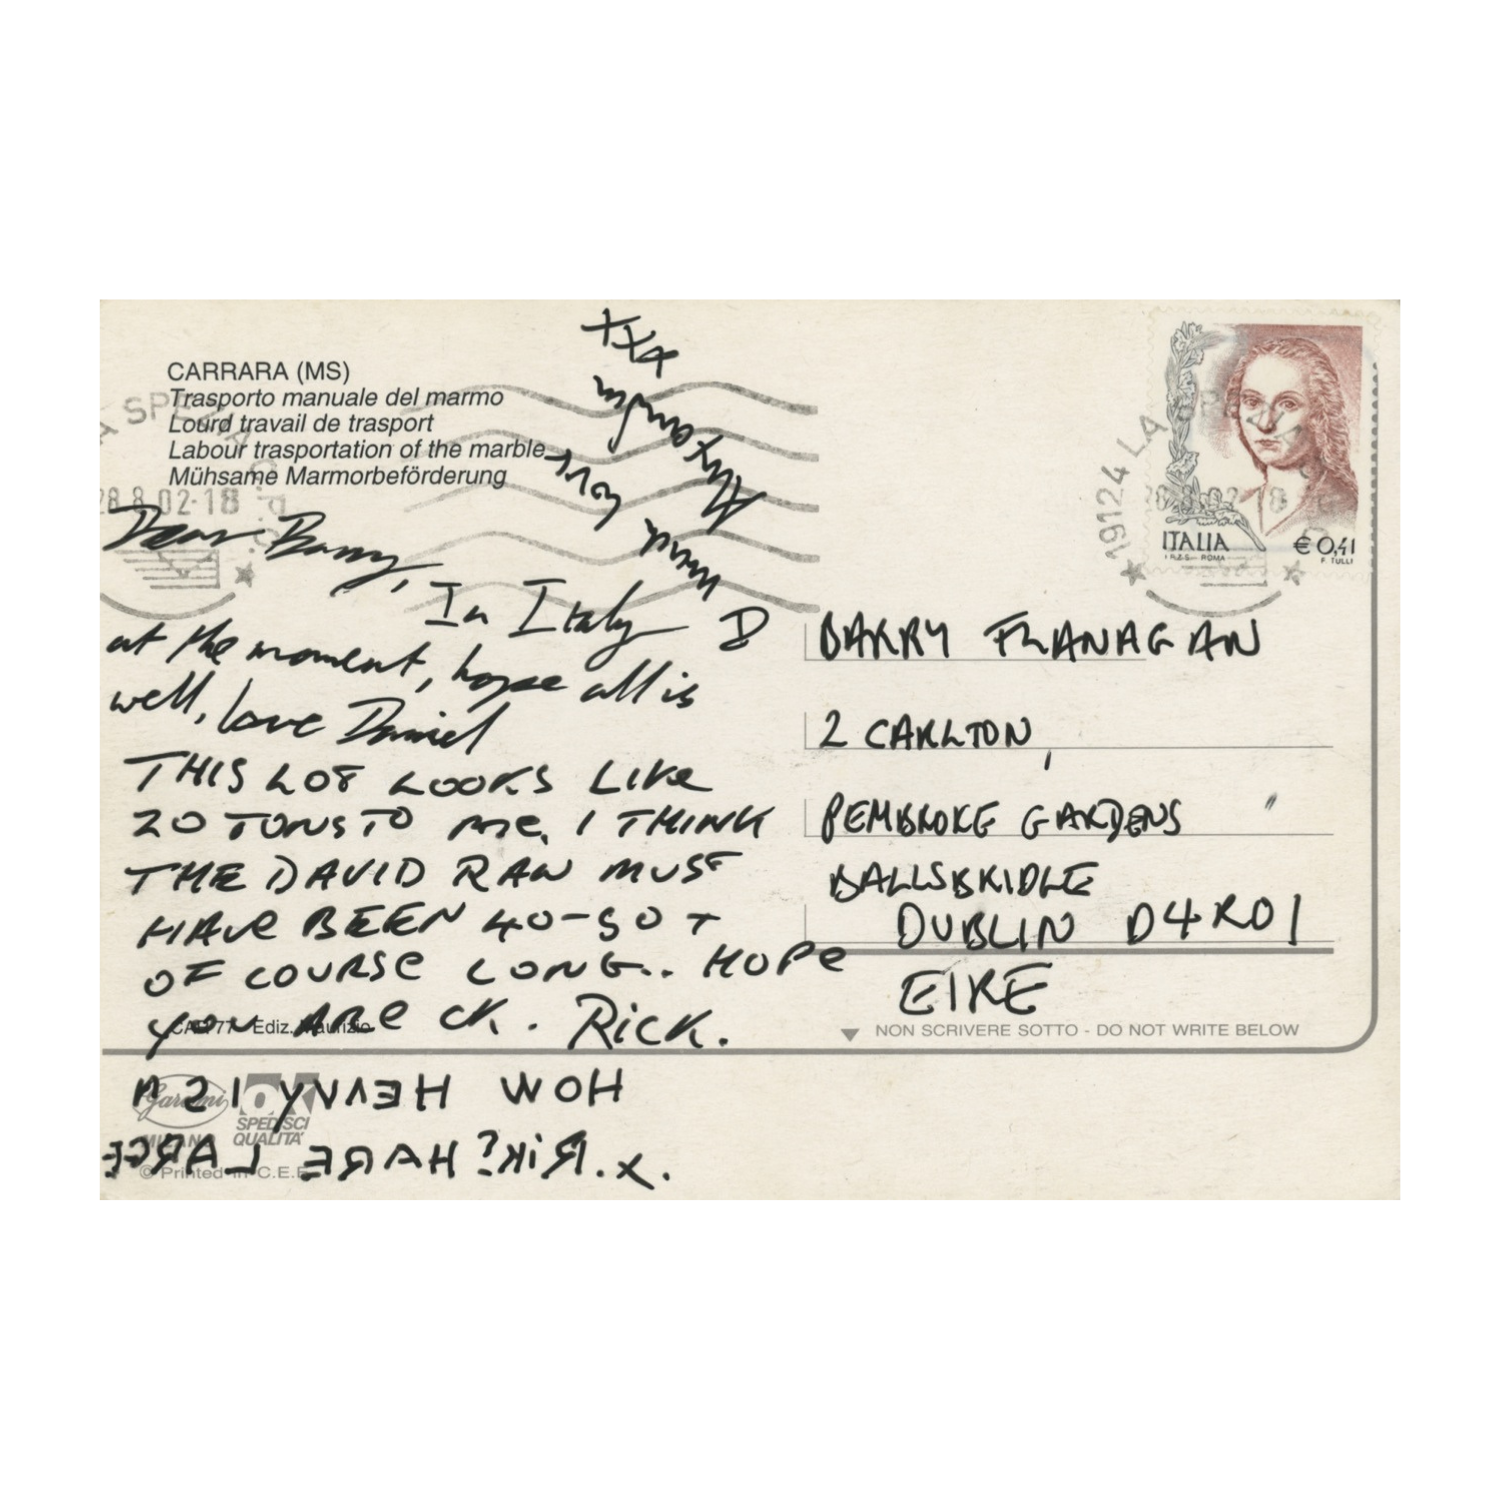 CARRARA (MS)
Trasporto manuale del marmo
Lourd travail de trasport
Labour trasportation of the marble
Mühsame Marmorbeförderung
LA SPEZIA
28.8.02-18
XXX
your
Dear Barry,
In Italy
at the moment, hope all is
well, love Daniel
THIS LOT LOOKS LIKE
20 TONS TO ME. I THINK
THE DAVID RAW MUST
HAVE BEEN 40-50 T
OF COURSE LONG.. HOPE
YOU ARE OK. RICK.
CA 177 Ediz. Maurizio
HOW HEAVY IS A
HARE LARGE
?RiK.x.
Garami
MILANO
OK
SPEDISCI
QUALITA'
© Printed in C.E.E.
19124 LA SPEZIA
28.8.02-18
ITALIA
I.P.Z.S. ROMA
€0,41
F. TULLI
BARRY FLANAGAN
2 CARLTON,
PEMBROKE GARDENS
BALLSBRIDGE
DUBLIN D4R01
EIRE
NON SCRIVERE SOTTO - DO NOT WRITE BELOW